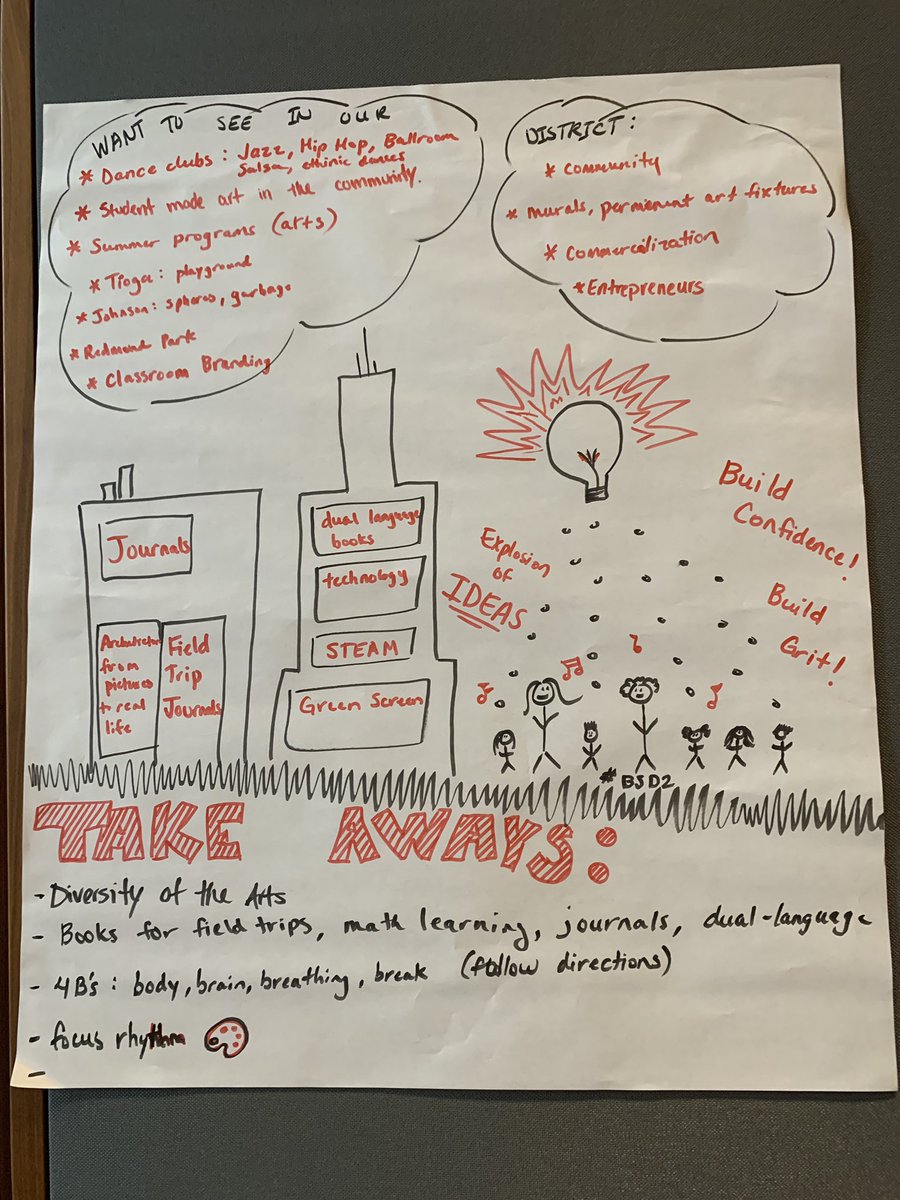 WANT TO SEE IN OUR
* Dance clubs: Jazz, Hip Hop, Ballroom
Salsa, ethinic dances
* Student made art in the community.
* Summer programs (arts)
* Tioga: playground
* Johnson: spheres, garbage
* Redmond Park
* Classroom Branding
DISTRICT:
* Community
* Murals, permenent art fixtures
* Commercilization
* Entrepreneurs
Journals
Architecture
from
pictures
to real
life
Field
Trip
Journals
dual language
books
technology
STEAM
Green Screen
Explosion
of
IDEAS
Build
Confidence!
Build
Grit!
#BSD2
TAKE AWAYS:
- Diversity of the Arts
- Books for field trips, math learning, journals, dual-language
- 4B's: body, brain, breathing, break (follow directions)
- focus rhythm
-